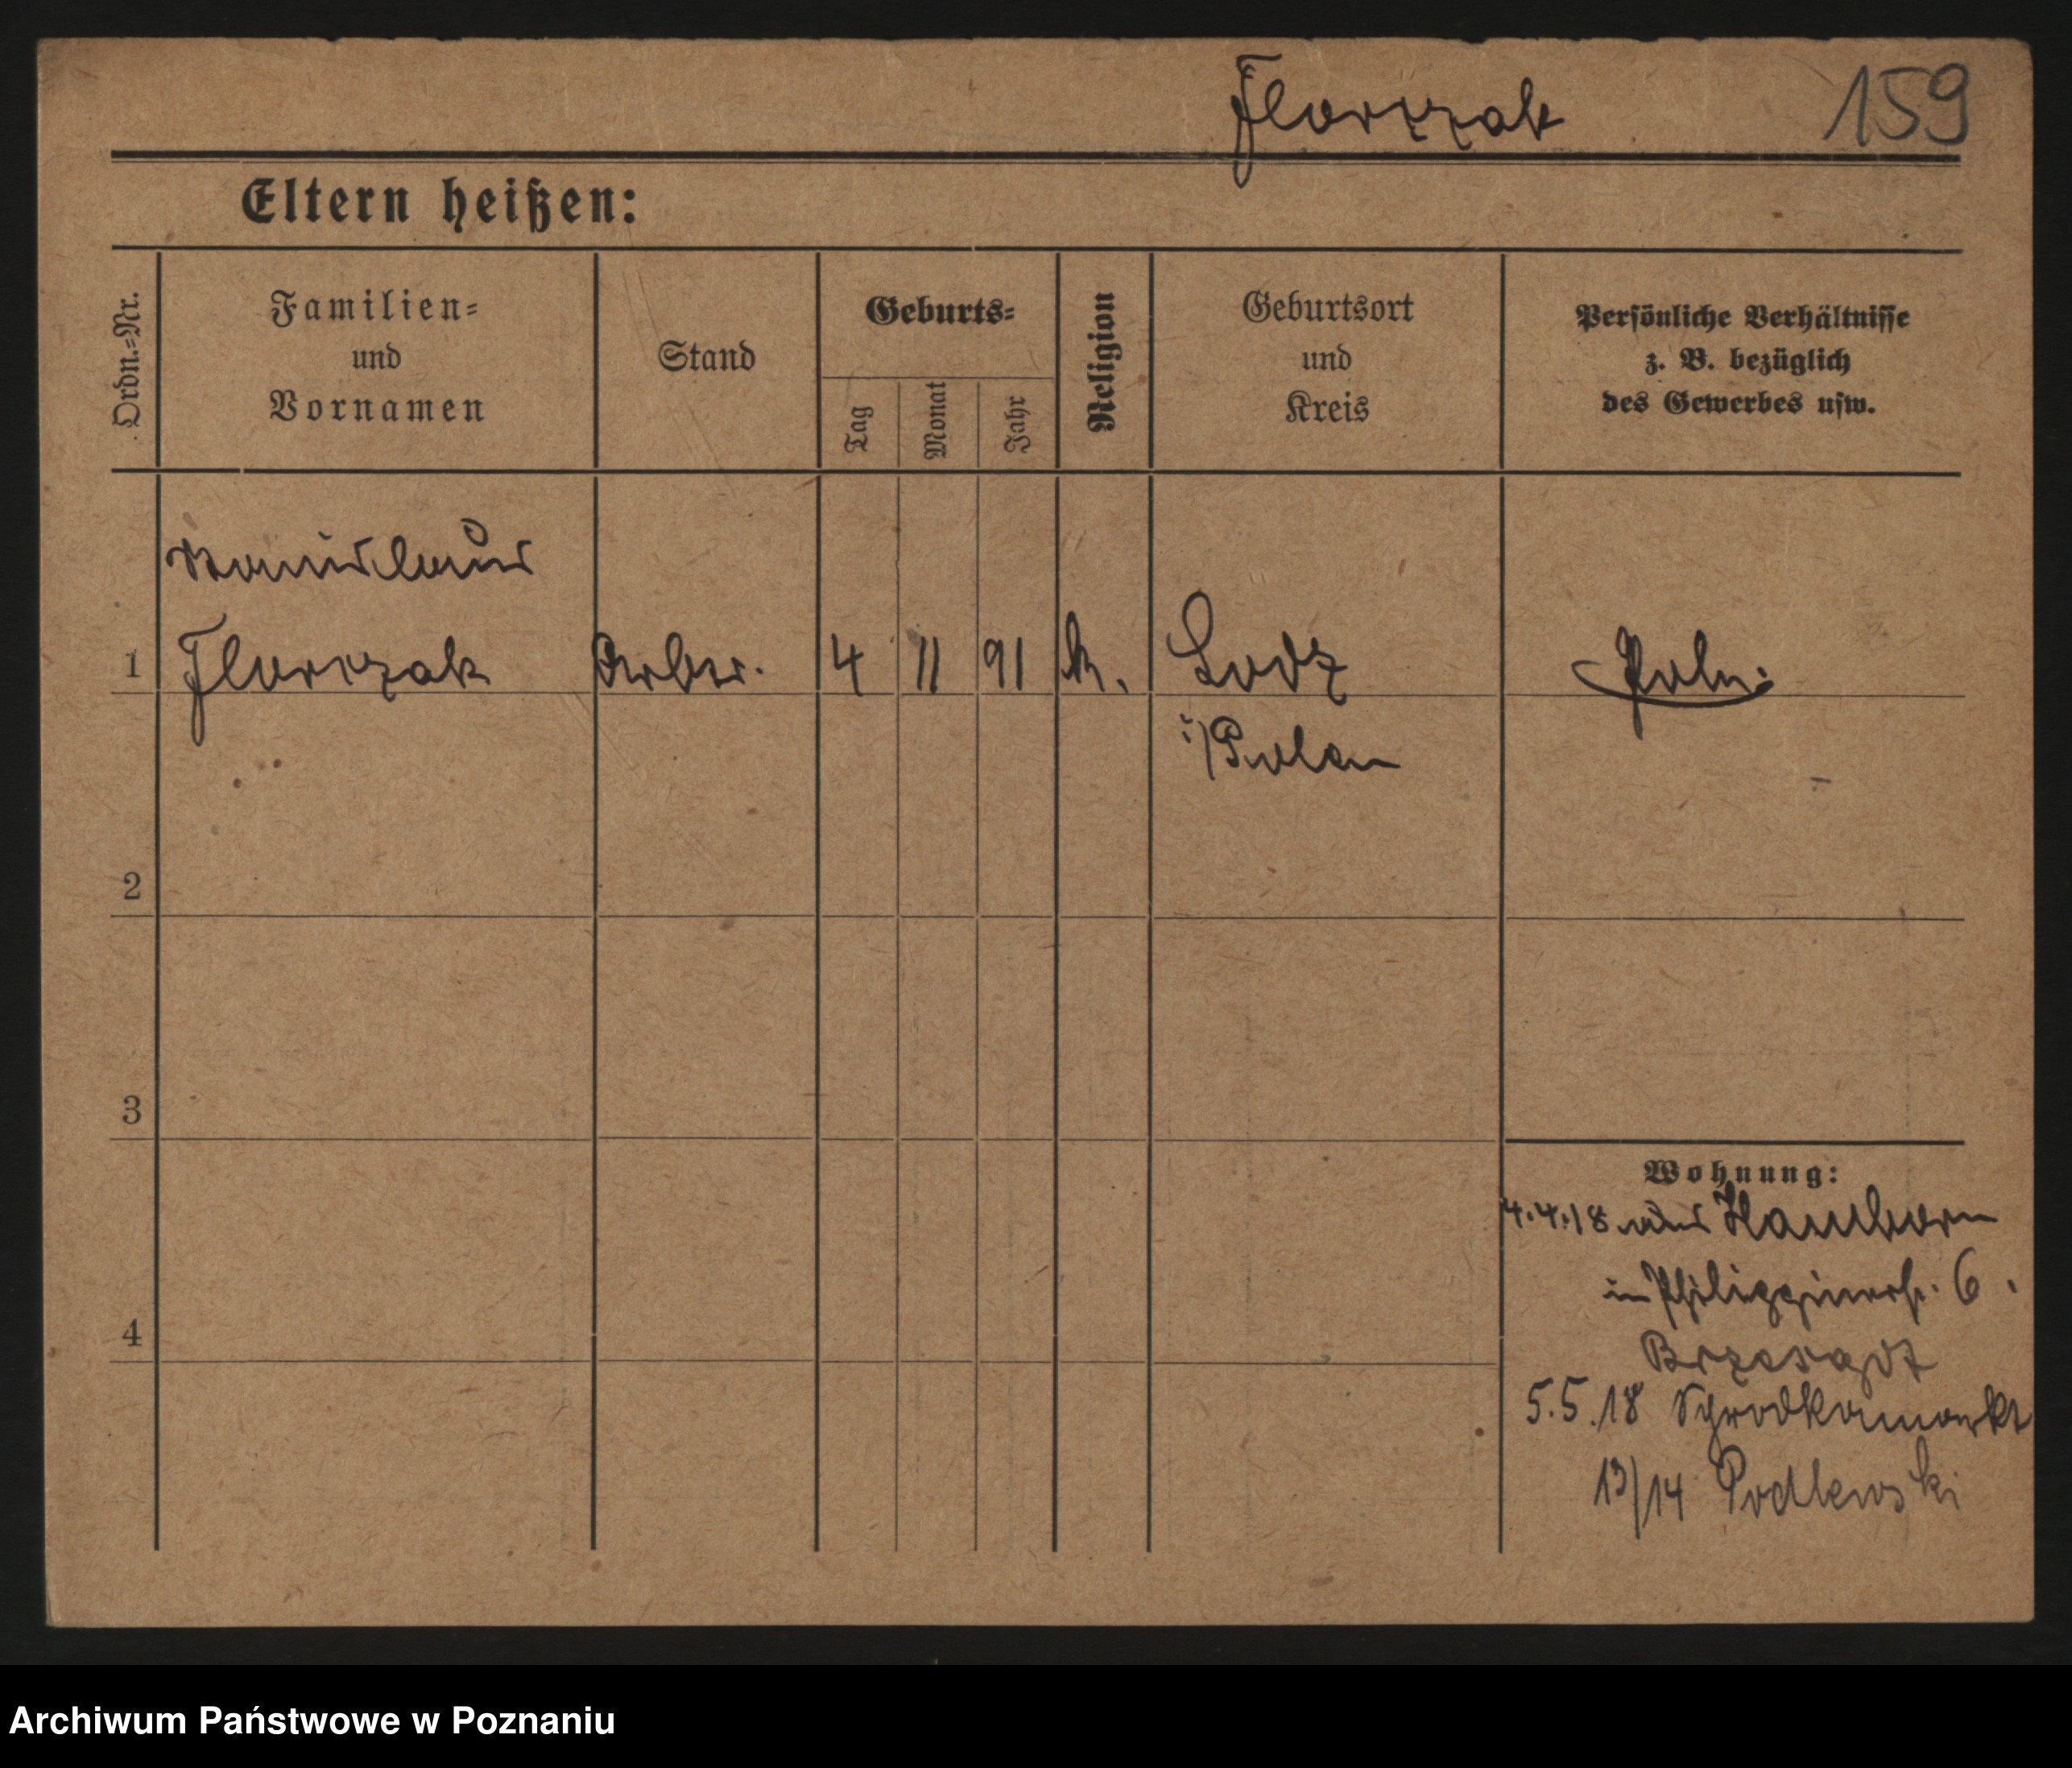 Florczak 159
Eltern heißen:
Ordn.-Nr.
Familien-
und
Vornamen
Stand
Geburts-
Tag
Monat
Jahr
Religion
Geburtsort
und
Kreis
Persönliche Verhältnisse
z. B. bezüglich
des Gewerbes usw.
1 Florczak Arbtr. 4 11 91 k. Lodz Poln.
i/Polen
2
3
4
Wohnung:
4.4.18 aus Hamborn
in Philippinerstr. 6.
5.5.18 Schrodkamarkt
13/14 Podlewski
Archiwum Państwowe w Poznaniu